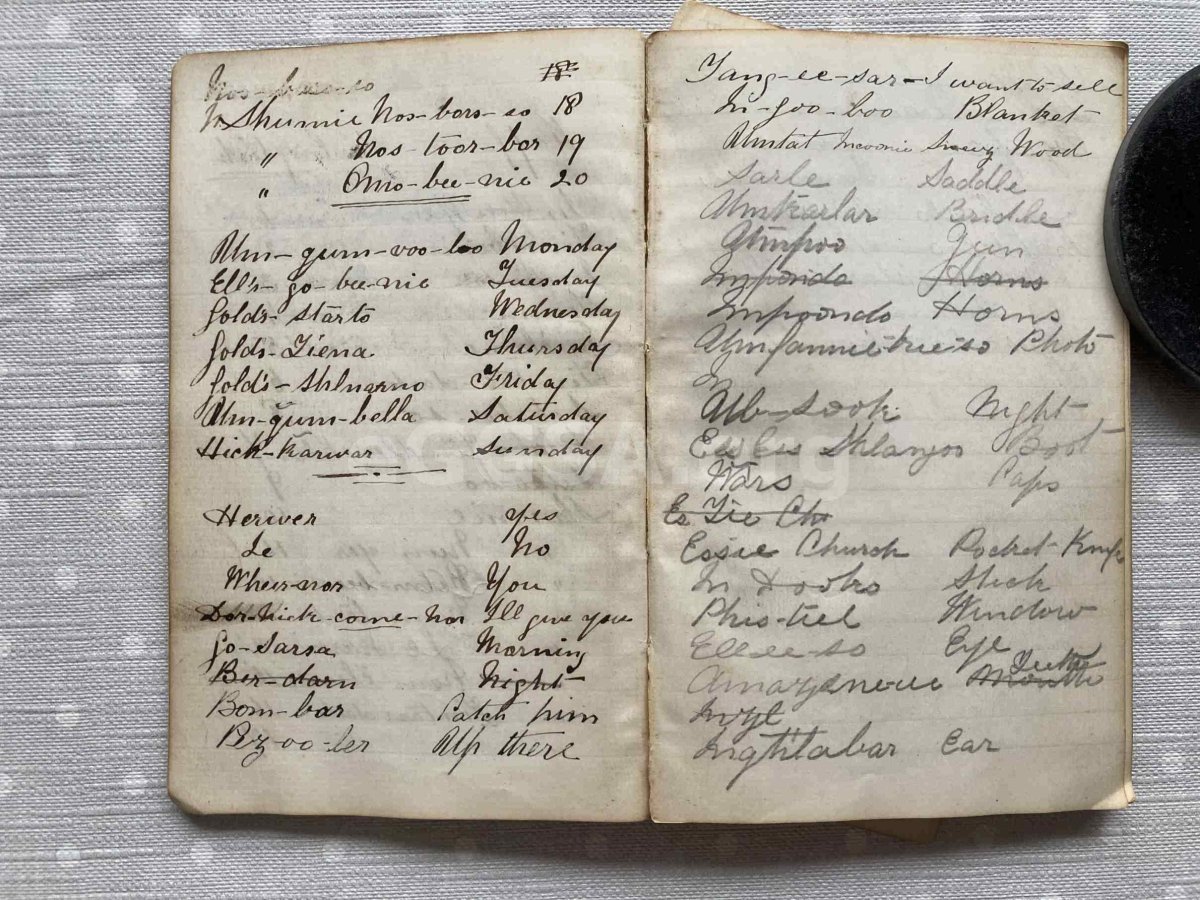 18
Shumie Nos-bors-so 18
" Nos-toor-bor 19
" Omo-bee-nie 20
Um-gum-voo-loo Monday
Ell's-go-bee-nie Tuesday
Golds-starto Wednesday
Golds-Tiena Thursday
Gold's-Shlnarno Friday
Um-gum-bella Saturday
Hick-Karwar Sunday
Herwer Yes
Le No
Wheir-nor You
Dor-nick-come-nor I'll give you
Go-Sarsa Morning
Ber-darn Night
Bom-bar Catch him
Pez-oo-ler Up there
Tang-ee-sar-I want to sell
In-goo-boo Blanket
Umtat Wood
Sarle Saddle
Umkarlar Bridle
Umpoo Gun
Imponda Horns
Impoondo Horns
Photo
Ub-sook Night
Shlangor Boot
Wars Caps
Es Tie Ch
Essie Church Pocket-Knife
In Dooko Stick
Phis-tiel Window
Ellee-so Eye
Amazeneue Teeth Mouth
Invyl
Inghtlabar Ear